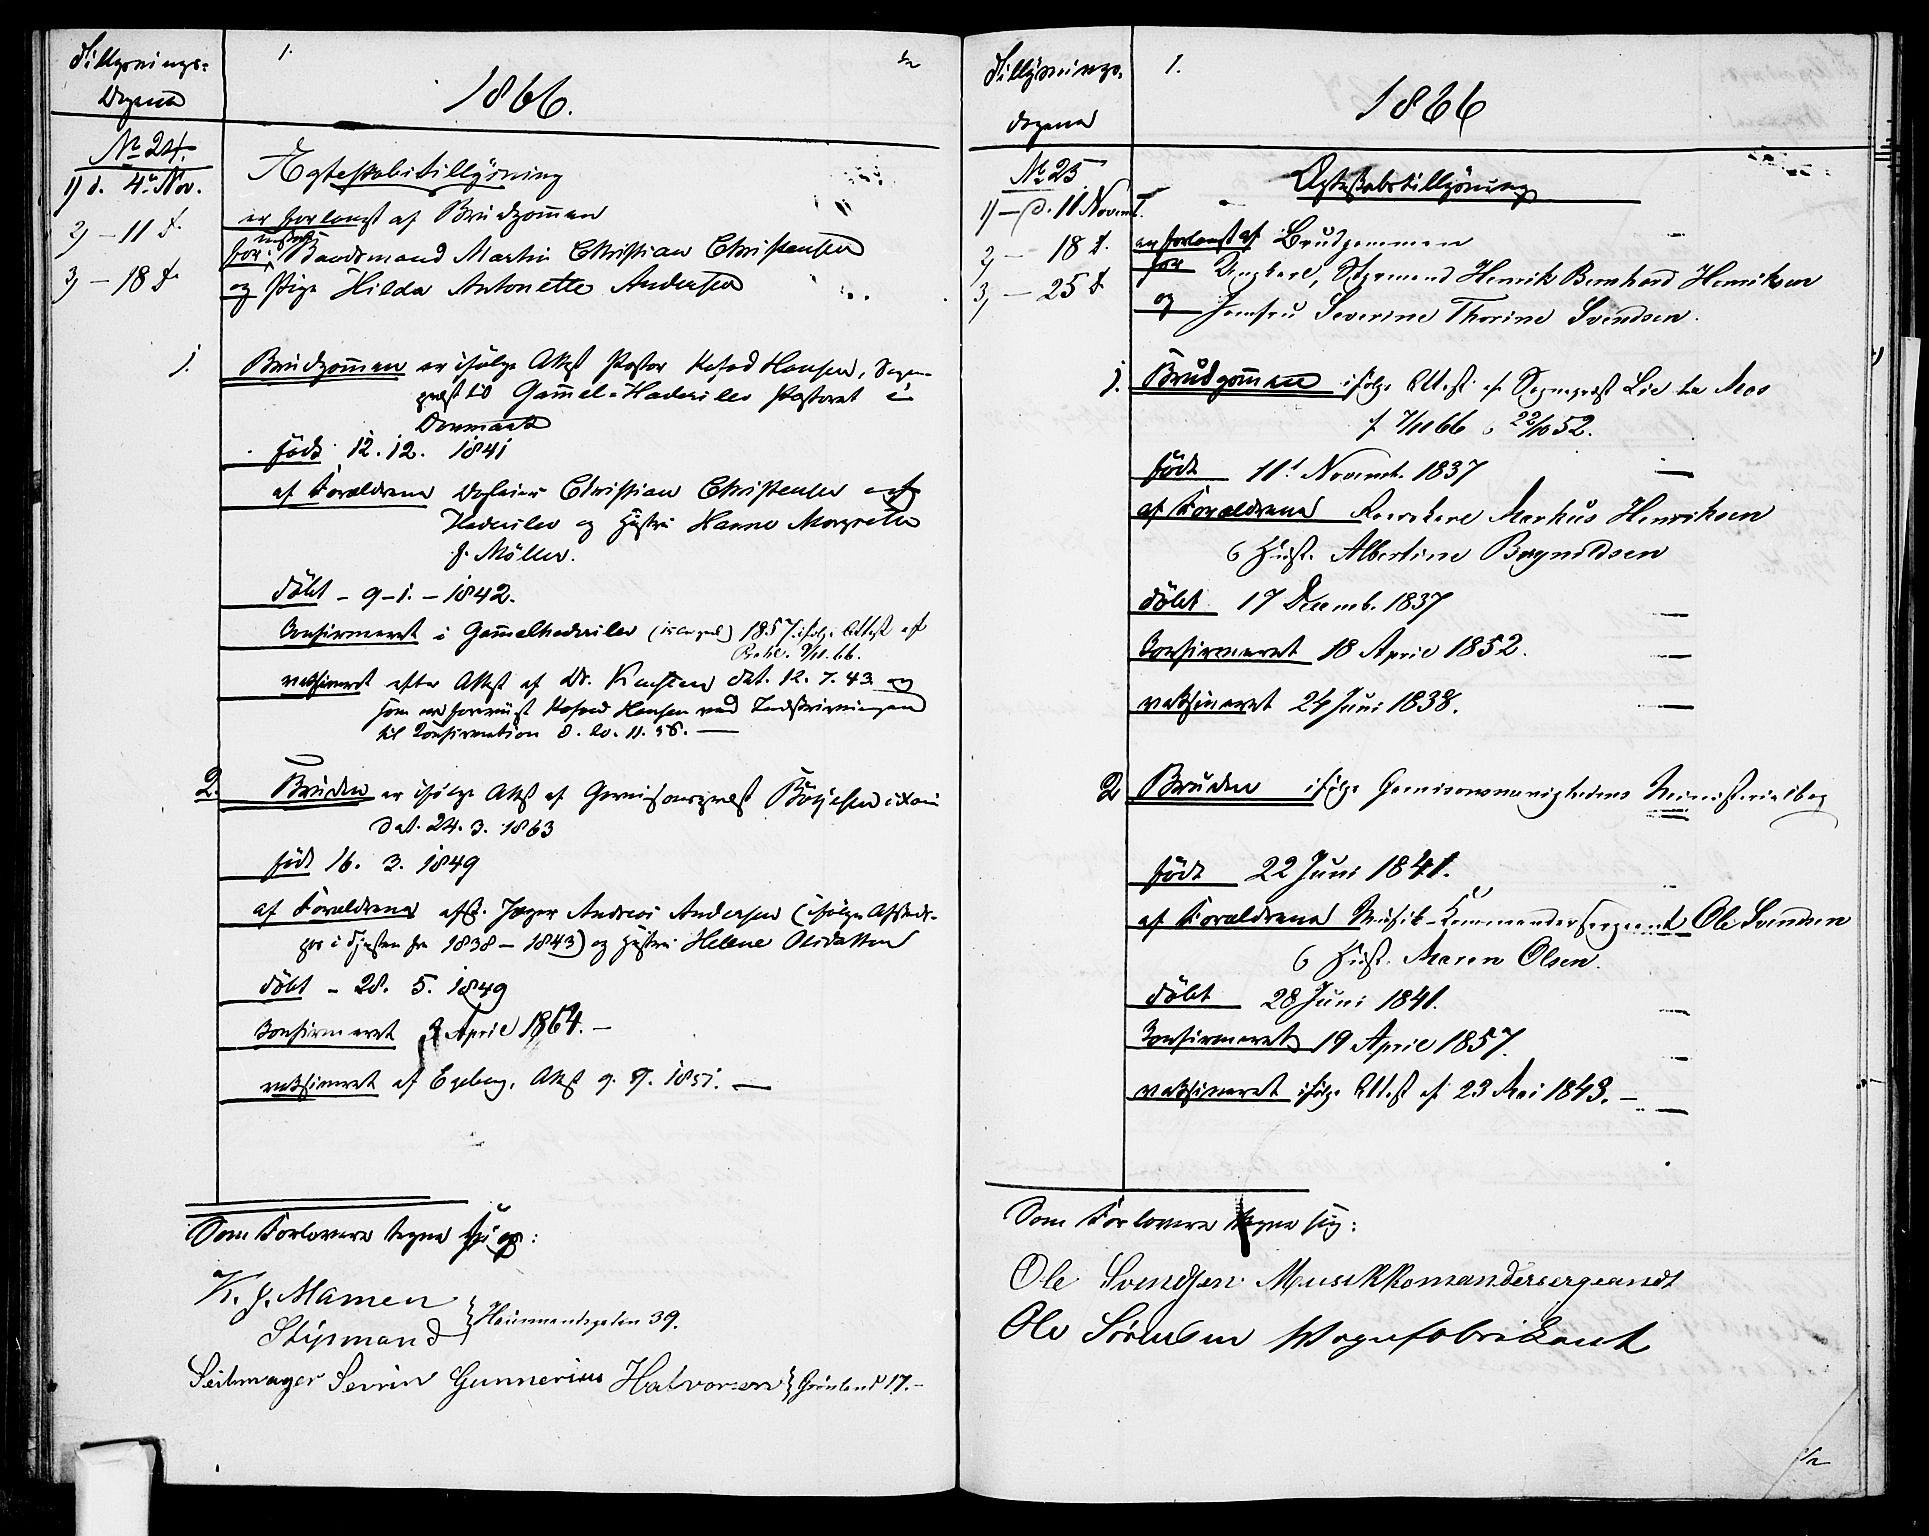 Tillysnings-
Dagene
1.
1866.
No 24.
1) d. 4de Nov.
2) - 11 d.
3) - 18 d.
Ægteskabstillysning
er forlangt af Brudgommen
for: Baadsmand Martin Christian Christensen
og Pige Hilda Antonette Andersen
1. Brudgommen er ifølge Attest Pastor Kofoed Hansen, Sogne-
præst til Gammel-Haderslev Pastorat i
Danmark
født 12.12. 1841
af Forældrene Christian Christensen af
Haderslev og Hustru Hanne Margrethe
f. Möller.
døbt - 9-1. - 1842.
Confirmeret i Gammelhaderslev 1857 ifølge Attest af
vaksineret efter Attest af Dr. Karsten dat. 12. 7. 43 og
Kofoed Hansen ved Indskrivningen
til Confirmation
2. Bruden er ifølge Attest af Garnisonspræst
dat. 24. 3. 1863
født 16. 3. 1849
af Forældrene afsk. Jæger Andreas Andersen (ifølge
i Tjenesten fra 1838 - 1843) og Hustru Helene Olsdatter
døbt - 28. 5. 1849
Confirmeret 3 April 1864. -
vaksineret af Egeberg, Attest 9. 9. 1851. -
Som Forlovere tegne sig:
K. J. Mamen
Styrmand } 39.
Seilmager Sevrin Gunnerius Halvorsen } Grønland 17. -
Tillysnings-
dagene
1.
1866
No 25
1) - d. 11 Novemb.
2) - 18 d.
3) - 25 d.
Ægteskabstillysning
er forlangt af Brudgommen
for Ungkarl, Styrmand Henrik Bernhard Henriksen
og Jomfru Severine Thorine Svendsen.
1. Brudgommen ifølge Attest af Sognepræst Lie fra Mos
af 7/11 66 & 22/10 52.
født 11te Novemb. 1837
af Forældrene Markus Henriksen
& Hust. Albertine Bøynildsen
døbt 17 Decemb. 1837
Confirmeret 18 April 1852.
vaksineret 24 Juni 1838.
2 Bruden ifølge Garnisonsmenighedens Ministerialbog
født 22 Juni 1841.
af Forældrene Musik-Kommandersergeant Ole Svendsen
& Hust. Maren Olsen.
døbt 28 Juni 1841.
Confirmeret 19 April 1857.
vaksineret ifølge Attest af 23 Mai 1843. -
Som Forlovere tegne sig:
Ole Svendsen Musikkomandersergeandt
Ole Sörensen Vognfabrikant